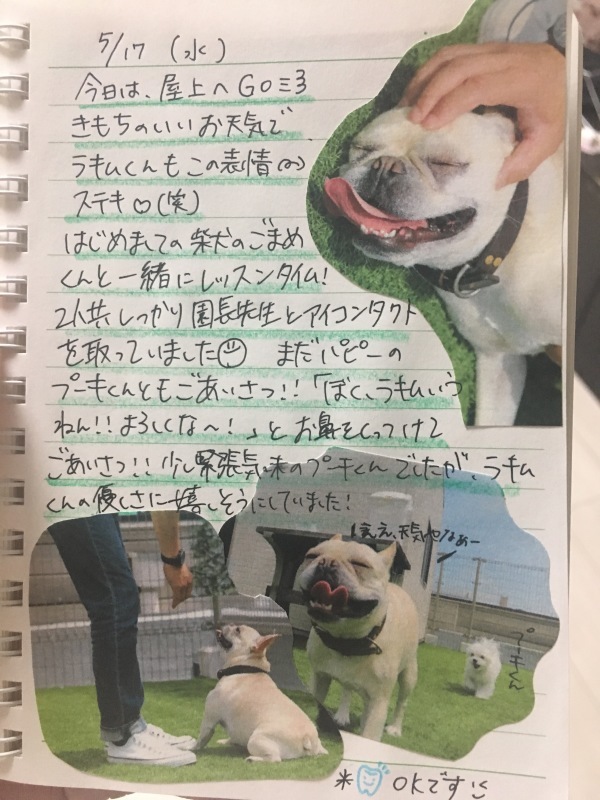 5/17 (水)
今日は、屋上へGO三3
きもちのいいお天気で
ラキムくんもこの表情(^^)
ステキ♡(笑)
はじめましての柴犬のごまめ
くんと一緒にレッスンタイム!
2人共しっかり園長先生とアイコンタクト
を取っていました☺ まだパピーの
プーキくんともごあいさつ!!「ぼく、ラキムいう
ねん!!よろしくな〜!」とお鼻をくっつけて
ごあいさつ!!少し緊張気味のプーキくんでしたが、ラキム
くんの優しさに嬉しそうにしていました!
ええ天気やなぁー
プーキくん
* OKです